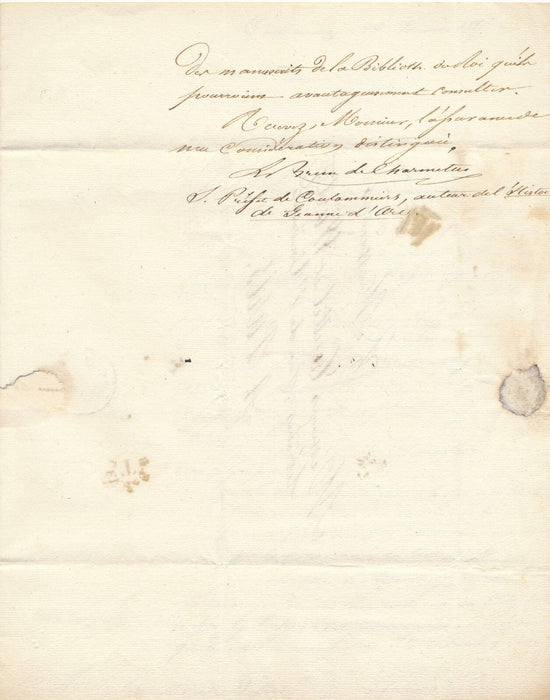 des manuscrits de la Biblioth. du Roi qu'ils
pourroient avantageusement consulter.
Recevez, Monsieur, l'assurance de
ma Considération distinguée,
Le Brun de Charmettes
S. Préfet de Coulommiers, auteur de l'Histoire
de Jeanne d'Arc.